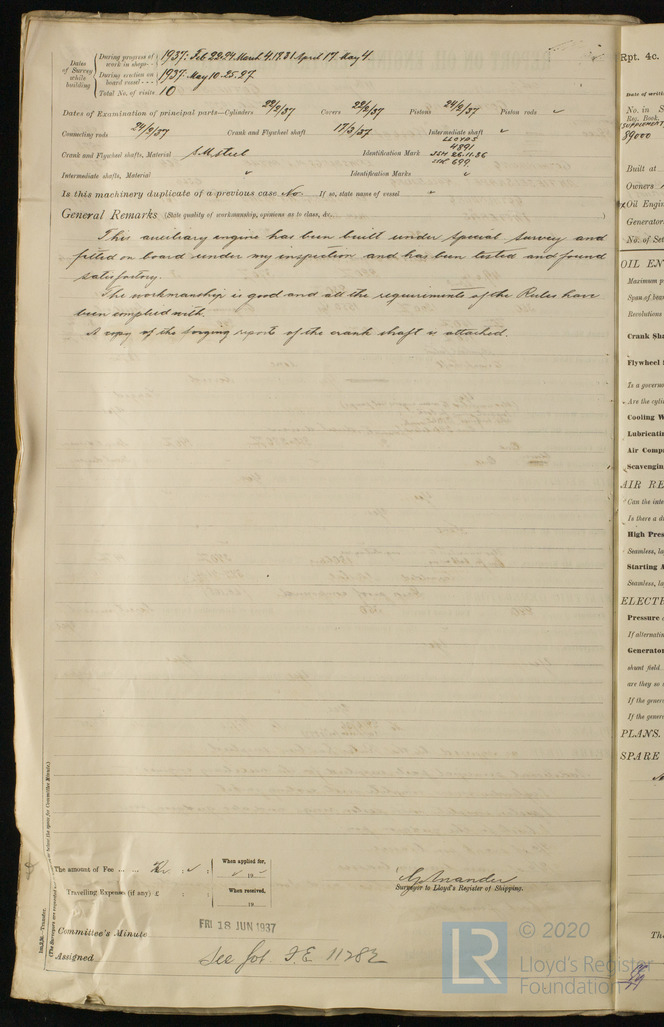 Dates of Survey while building
During progress of work in shops - - 1937: Feb 22.24. March 4.17.31. April 17. May 4.
During erection on board vessel - - - 1937. May 10. 25. 27.
Total No. of visits 10
Dates of Examination of principal parts—Cylinders 22/2/37 Covers 22/2/37 Pistons 24/2/37 Piston rods ✓
Connecting rods 24/2/37 Crank and Flywheel shaft 17/3/37 Intermediate shaft ✓
Crank and Flywheel shafts, Material S.M. steel Identification Mark LLOYDS 4891
Intermediate shafts, Material ✓ Identification Marks ✓
Is this machinery duplicate of a previous case No If so, state name of vessel ✓
General Remarks (State quality of workmanship, opinions as to class, &c. )
This auxiliary engine has been built under special survey and
fitted on board under my inspection and has been tested and found
satisfactory.
The workmanship is good and all the requirements of the Rules have
been complied with.
A copy of the forging reports of the crank shaft is attached.
The amount of Fee ... ... Kr. ✓ : When applied for, ✓ 19 ✓
Travelling Expenses (if any) £ : : When received, 19
Surveyor to Lloyd's Register of Shipping.
Committee's Minute FRI 18 JUN 1937
Assigned See Got. F.E. 11282
Im.8,36.—Transfer.
Rpt. 4c.
Date of writ
No. in S
Reg. Book.
(SUPPLEMENT
89000
Built at
Owners
Oil Engin
Generator
No. of Set
OIL EN
Maximum p
Span of bear
Revolutions
Crank Sha
Flywheel S
Is a governo
Are the cylin
Cooling W
Lubricatin
Air Comp
Scavengin
AIR RE
Can the inte
Is there a d
High Pres
Seamless, la
Starting A
Seamless, la
ELECT
Pressure
If alternatin
Generator
shunt field.
are they so
If the gener
If the gener
PLANS.
SPARE
Th
LR
© 2020
Lloyd's Register
Foundation